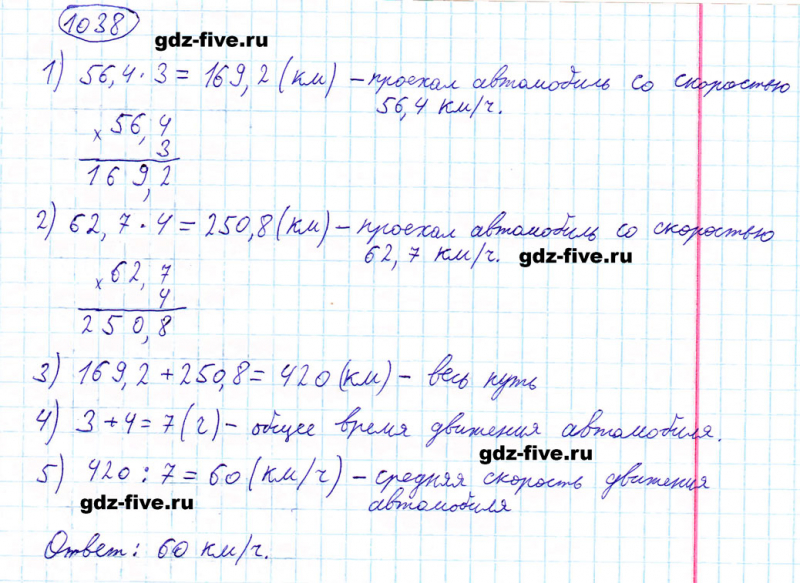 1038
gdz-five.ru
1) 56,4 · 3 = 169,2 (км) – проехал автомобиль со скоростью
56,4 км/ч.
× 56,4
3
169,2
2) 62,7 · 4 = 250,8 (км) – проехал автомобиль со скоростью
62,7 км/ч. gdz-five.ru
× 62,7
4
250,8
3) 169,2 + 250,8 = 420 (км) – весь путь
4) 3 + 4 = 7 (г) – общее время движения автомобиля.
gdz-five.ru
5) 420 : 7 = 60 (км/ч) – средняя скорость движения
gdz-five.ru автомобиля
Ответ: 60 км/ч.